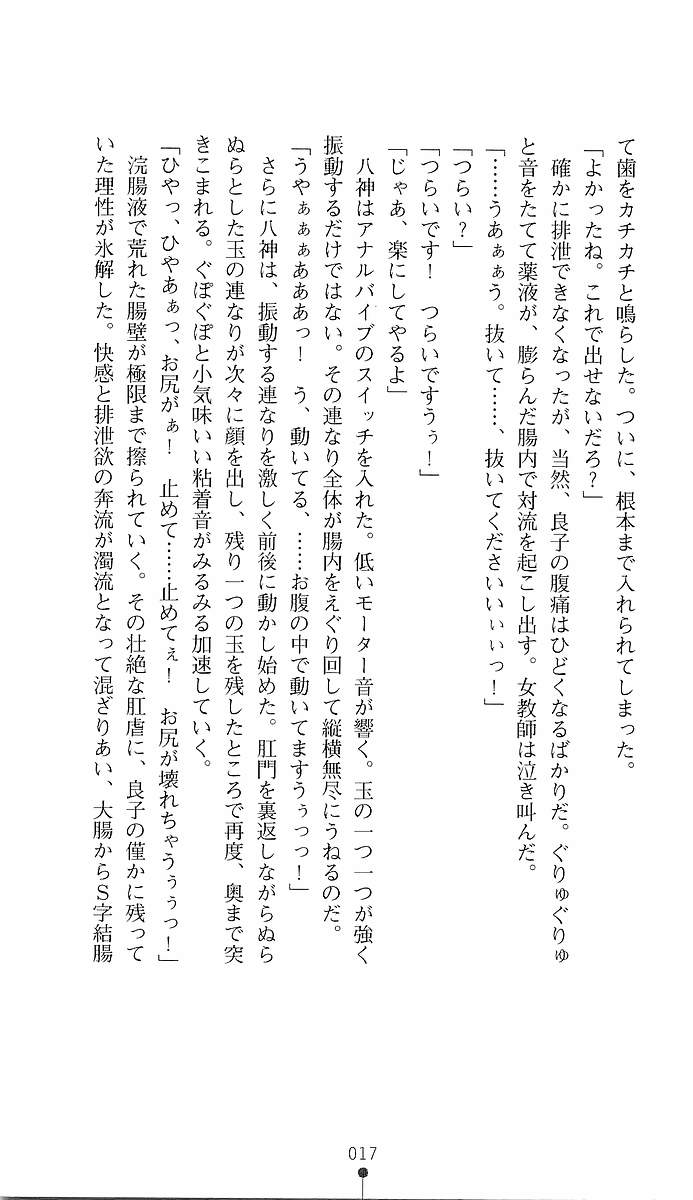 て歯をカチカチと鳴らした。ついに、根本まで入れられてしまった。
「よかったね。これで出せないだろ？」
　確かに排泄できなくなったが、当然、良子の腹痛はひどくなるばかりだ。ぐりゅぐりゅ
と音をたてて薬液が、膨らんだ腸内で対流を起こし出す。女教師は泣き叫んだ。
「……うあぁぁう。抜いて……、抜いてくださいいぃぃっ！」
「つらい？」
「つらいです！　つらいですうぅ！」
「じゃあ、楽にしてやるよ」
　八神はアナルバイブのスイッチを入れた。低いモーター音が響く。玉の一つ一つが強く
振動するだけではない。その連なり全体が腸内をえぐり回して縦横無尽にうねるのだ。
「うやぁぁぁあああっ！　う、動いてる、……お腹の中で動いてますうぅっっ！」
　さらに八神は、振動する連なりを激しく前後に動かし始めた。肛門を裏返しながらぬら
ぬらとした玉の連なりが次々に顔を出し、残り一つの玉を残したところで再度、奥まで突
きこまれる。ぐぽぐぽと小気味いい粘着音がみるみる加速していく。
「ひやっ、ひやあぁっ、お尻がぁ！　止めて……止めてぇ！　お尻が壊れちゃうぅぅっ！」
　浣腸液で荒れた腸壁が極限まで擦られていく。その壮絶な肛虐に、良子の僅かに残って
いた理性が氷解した。快感と排泄欲の奔流が濁流となって混ざりあい、大腸からＳ字結腸
017